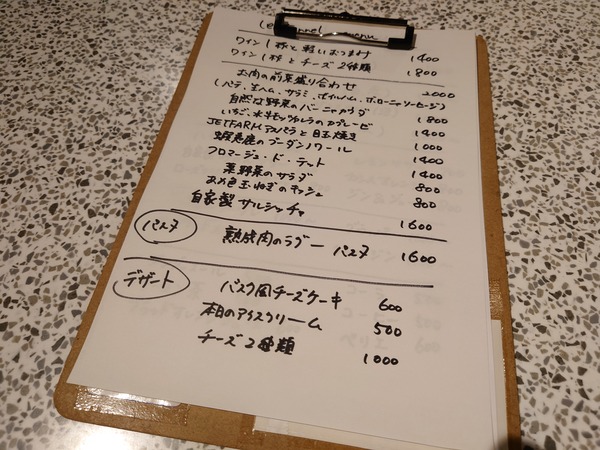 menu
ワイン1杯と軽いおつまみ 1400
ワイン1杯とチーズ2種類 1800
お肉の前菜盛り合わせ 2000
(パテ、生ハム、サラミ、ホイルハム、ボローニャソーセージ)
自然な野菜のバーニャカウダ 1800
いちご、水牛モッツァレラのカプレーゼ 1400
JETFARMアスパラと目玉焼き 1000
蝦夷鹿のブーダンノワール 1400
フロマージュ・ド・テット 1400
葉野菜のサラダ 800
あめ色玉ねぎのキッシュ 800
自家製サルシッチャ 1600
パスタ
熟成肉のラグー パスタ 1600
デザート
バスク風チーズケーキ 600
本日のアイスクリーム 500
チーズ2種類 1000